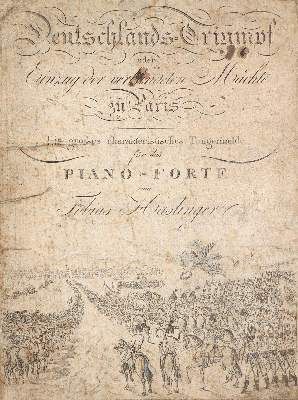 Deutschlands Triumpf
oder
Einzug der verbündeten Mächte
zu Paris
Ein grosses charakteristisches Tongemälde
für das
PIANO-FORTE
von
Tobias Haslinger